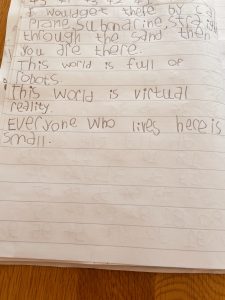 would get there by a
Plane, Submarine, Straight
through the sand then
you are there.
This world is full of
robots.
This world is virtual
reality.
Everyone who lives here is
small.